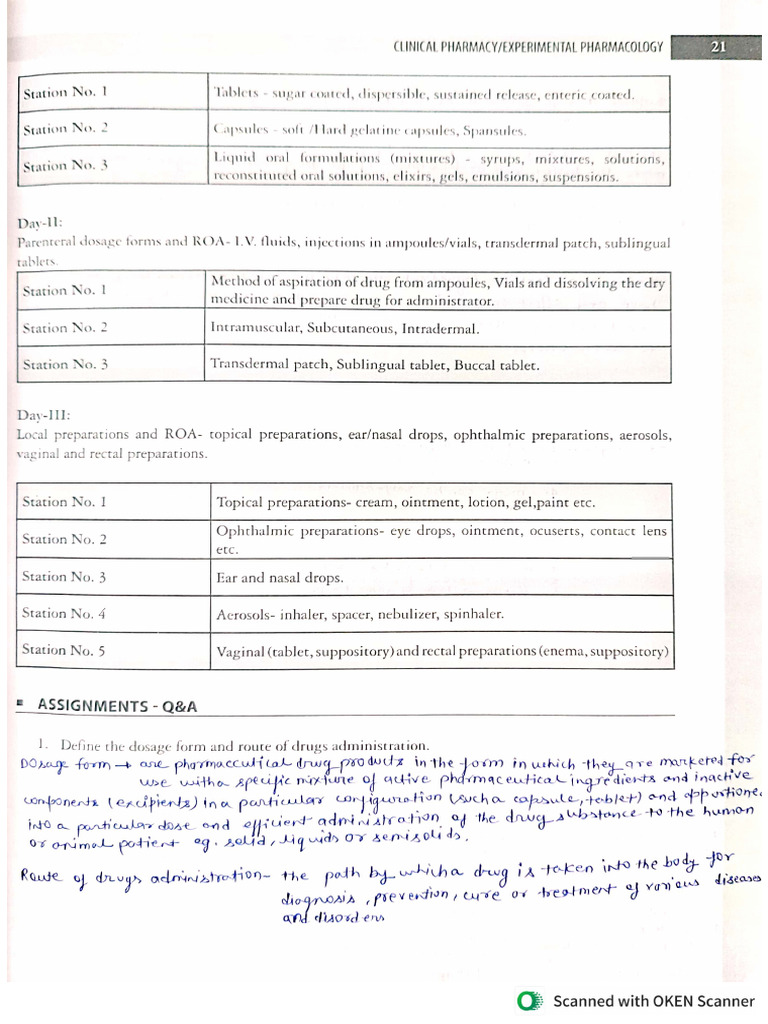 CLINICAL PHARMACY/EXPERIMENTAL PHARMACOLOGY 21
Station No. 1 Tablets - sugar coated, dispersible, sustained release, enteric coated.
Station No. 2 Capsules - soft /Hard gelatine capsules, Spansules.
Station No. 3 Liquid oral formulations (mixtures) - syrups, mixtures, solutions,
reconstituted oral solutions, elixirs, gels, emulsions, suspensions.
Day-II:
Parenteral dosage forms and ROA- I.V. fluids, injections in ampoules/vials, transdermal patch, sublingual
tablets.
Station No. 1 Method of aspiration of drug from ampoules, Vials and dissolving the dry
medicine and prepare drug for administrator.
Station No. 2 Intramuscular, Subcutaneous, Intradermal.
Station No. 3 Transdermal patch, Sublingual tablet, Buccal tablet.
Day-III:
Local preparations and ROA- topical preparations, ear/nasal drops, ophthalmic preparations, aerosols,
vaginal and rectal preparations.
Station No. 1 Topical preparations- cream, ointment, lotion, gel,paint etc.
Station No. 2 Ophthalmic preparations- eye drops, ointment, ocuserts, contact lens
etc.
Station No. 3 Ear and nasal drops.
Station No. 4 Aerosols- inhaler, spacer, nebulizer, spinhaler.
Station No. 5 Vaginal (tablet, suppository) and rectal preparations (enema, suppository)
ASSIGNMENTS - Q&A
1. Define the dosage form and route of drugs administration.
Dosage form → are pharmaceutical drug products in the form in which they are marketed for
use with a specific mixture of active pharmaceutical ingredients and inactive
components (excipients) in a particular configuration (such a capsule, tablet) and apportioned
into a particular dose and efficient administration of the drug substance to the human
or animal patient eg. solid, liquids or semisolids.
Route of drugs administration- the path by which a drug is taken into the body for
diagnosis, prevention, cure or treatment of various diseases
and disorders
Scanned with OKEN Scanner